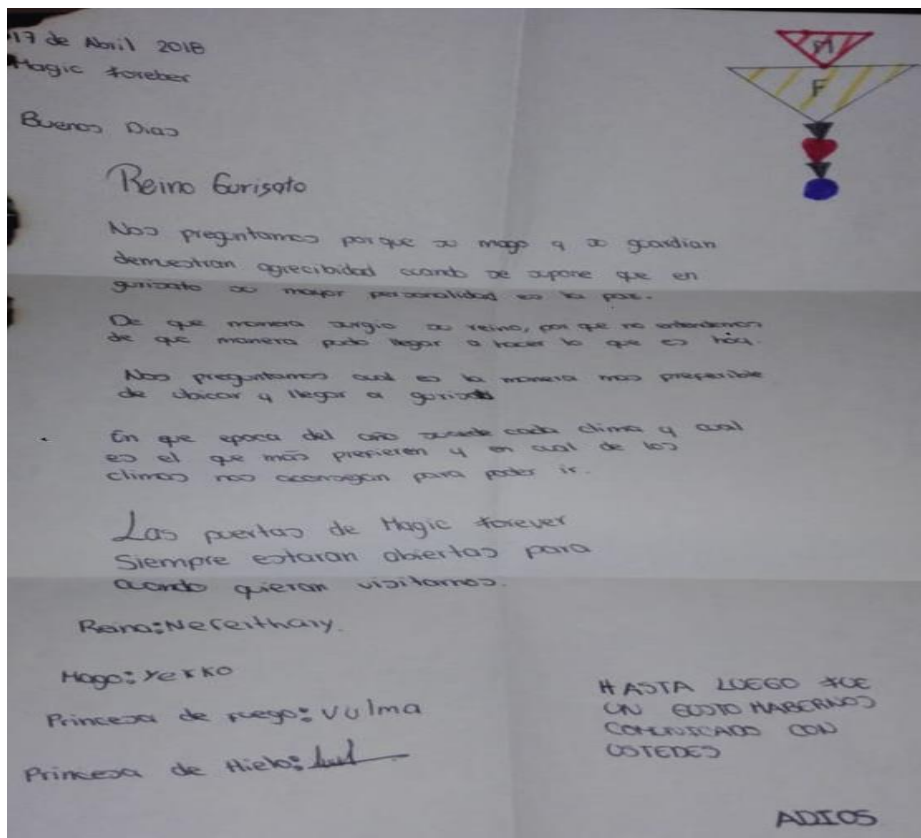 17 de Abril 2018
Magic foreber
M
F
Buenos Dias
Reino Gurisato
Nos preguntamos porque su mago y su guardian
demuestran agrecibidad cuando se supone que en
gurisato su mayor personalidad es la paz.
De que manera surgio su reino, por que no entendemos
de que manera pudo llegar a hacer lo que es hóy.
Nos preguntamos cual es la manera mas preferible
de ubicar y llegar a gurisato
En que epoca del año sucede cada clima y cual
es el que mas prefieren y en cual de los
climas nos aconsegan para poder ir.
Las puertas de Magic forever
Siempre estaran abiertas para
cuando quieran visitarnos.
Reina: Neferthary.
Mago: Yerko
Princesa de fuego: Vulma
Princesa de Hielo:
HASTA LUEGO FUE
UN GUSTO HABERNOS
COMUNICADO CON
USTEDES
ADIOS